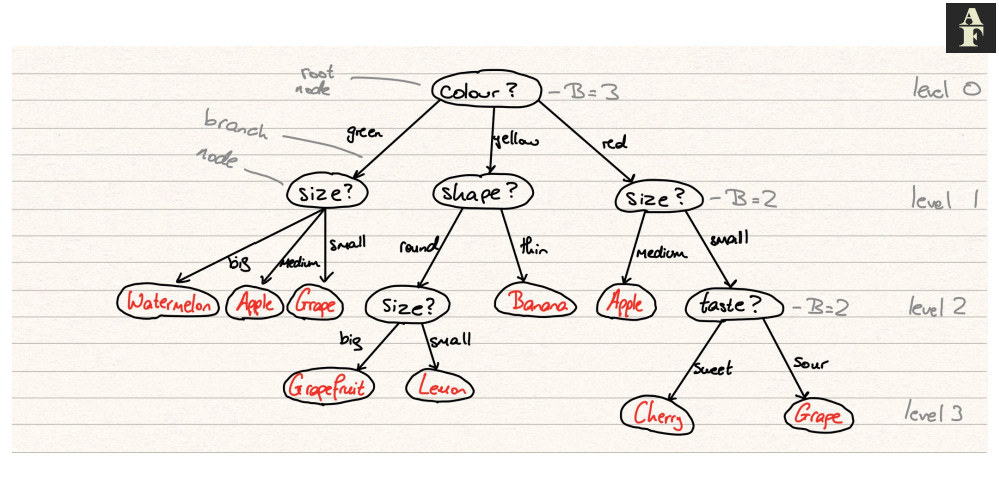 A
F
root
node
colour?
- B=3
level 0
branch
green
yellow
red
node
size?
shape?
size?
- B=2
level 1
big
medium
small
round
thin
medium
small
Watermelon
Apple
Grape
size?
Banana
Apple
taste?
- B=2
level 2
big
small
sweet
sour
Grapefruit
Lemon
Cherry
Grape
level 3